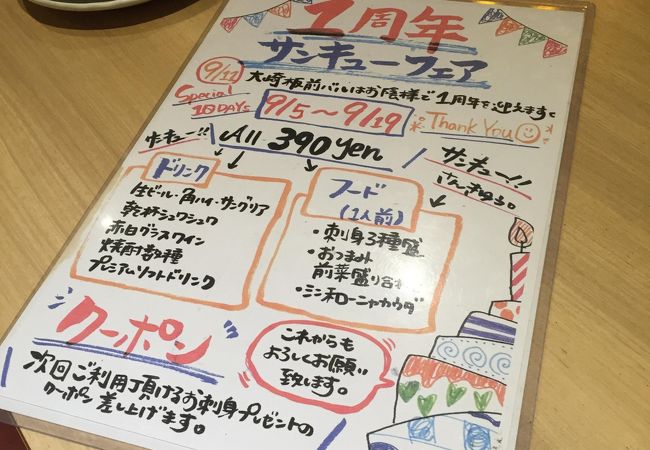 1周年
サンキューフェア
9/11
Special 1日DAYs
大崎板前バルはお陰様で1周年を迎えます
9/5〜9/19
Thank You
サンキュー!!
All 390yen
サンキュー!!
さんきゅう。
ドリンク
生ビール・角ハイ・サングリア
乾杯シュワシュワ
赤白グラスワイン
焼酎数種
プレミアムソフトドリンク
フード
(1人前)
・刺身3種盛
・おつまみ
前菜盛り合
・ミニ和ーニャカウダ
クーポン
次回ご利用頂けるお刺身プレゼントの
クーポン差し上げます。
これからも
よろしくお願い
致します。